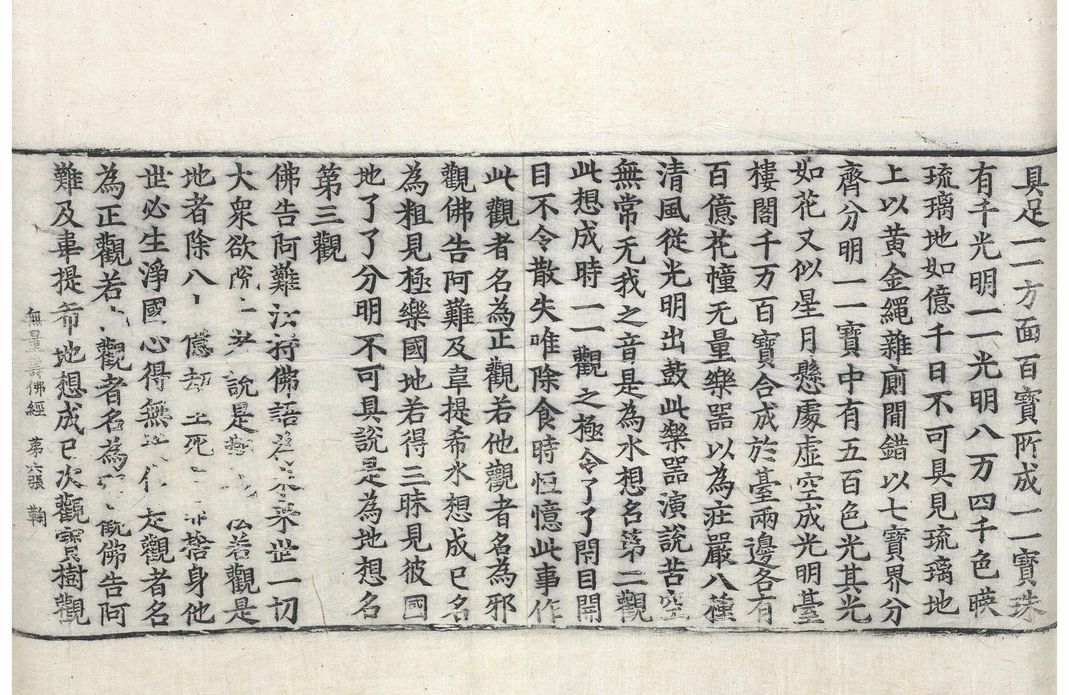 具足一一方面百寶所成一一寶珠
有千光明一一光明八万四千色暎
琉璃地如億千日不可具見琉璃地
上以黄金繩雜廁間錯以七寶界分
齊分明一一寶中有五百色光其光
如花又似星月懸處虛空成光明臺
樓閣千万百寶合成於臺兩邊各有
百億花幢无量樂器以為莊嚴八種
清風從光明出鼓此樂器演說苦空
無常无我之音是為水想名第二觀
此想成時一一觀之極令了了閇目開
目不令散失唯除食時恒憶此事作
此觀者名為正觀若他觀者名為邪
觀佛告阿難及韋提希水想成已名
為粗見極樂國地若得三昧見彼國
地了了分明不可具說是為地想名
第三觀
佛告阿難汝持佛語為未來世一切
大衆欲說是若觀是
地者除八億劫生死捨身他
世必生淨國心得無是觀者名
為正觀若觀者名為觀佛告阿
難及韋提希地想成已次觀寶樹觀
無量壽佛經 第六張